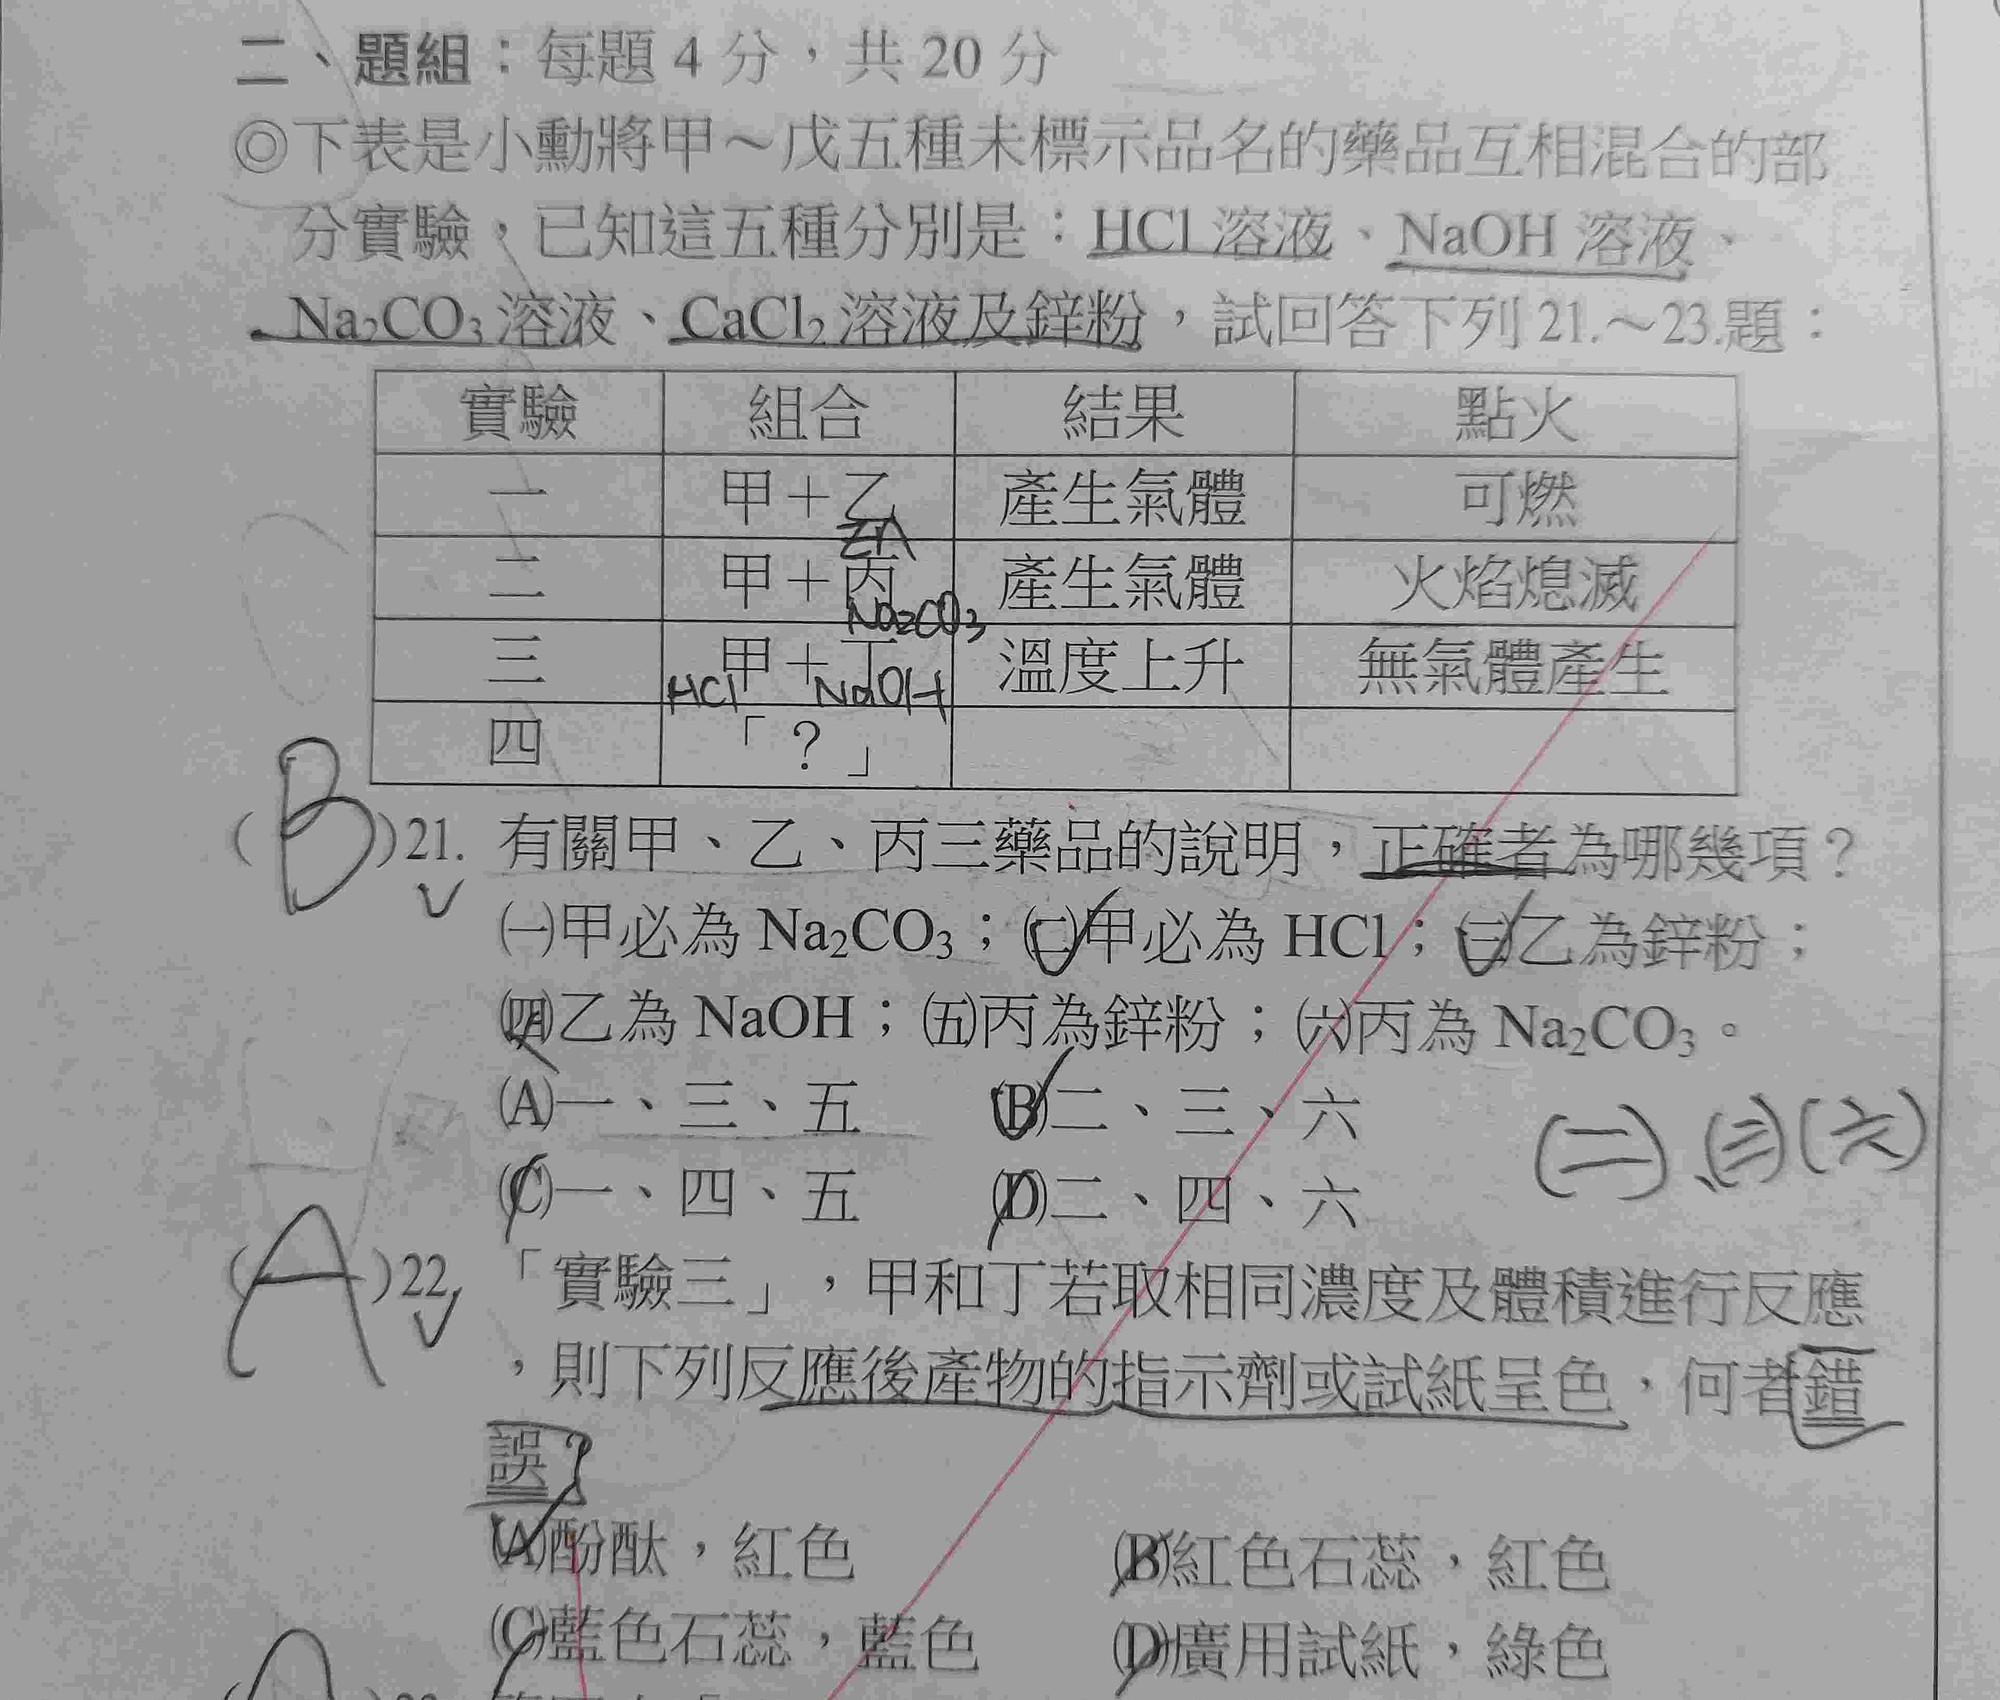 二、題組：每題 4 分，共 20 分
◎下表是小勳將甲～戊五種未標示品名的藥品互相混合的部
分實驗，已知這五種分別是：HCl 溶液、NaOH 溶液、
Na₂CO₃ 溶液、CaCl₂ 溶液及鋅粉，試回答下列 21.～23.題：
實驗 組合 結果 點火
一 甲＋乙 產生氣體 可燃
Zn
二 甲＋丙 產生氣體 火焰熄滅
Na₂CO₃
三 甲＋丁 溫度上升 無氣體產生
HCl NaOH
四 「？」
(B)21. 有關甲、乙、丙三藥品的說明，正確者為哪幾項？
㈠甲必為 Na₂CO₃；㈡甲必為 HCl；㈢乙為鋅粉；
㈣乙為 NaOH；㈤丙為鋅粉；㈥丙為 Na₂CO₃。
(A)一、三、五 (B)二、三、六
(二)、(三)(六)
(C)一、四、五 (D)二、四、六
(A)22. 「實驗三」，甲和丁若取相同濃度及體積進行反應
，則下列反應後產物的指示劑或試紙呈色，何者錯
誤？
(A)酚酞，紅色 (B)紅色石蕊，紅色
(C)藍色石蕊，藍色 (D)廣用試紙，綠色